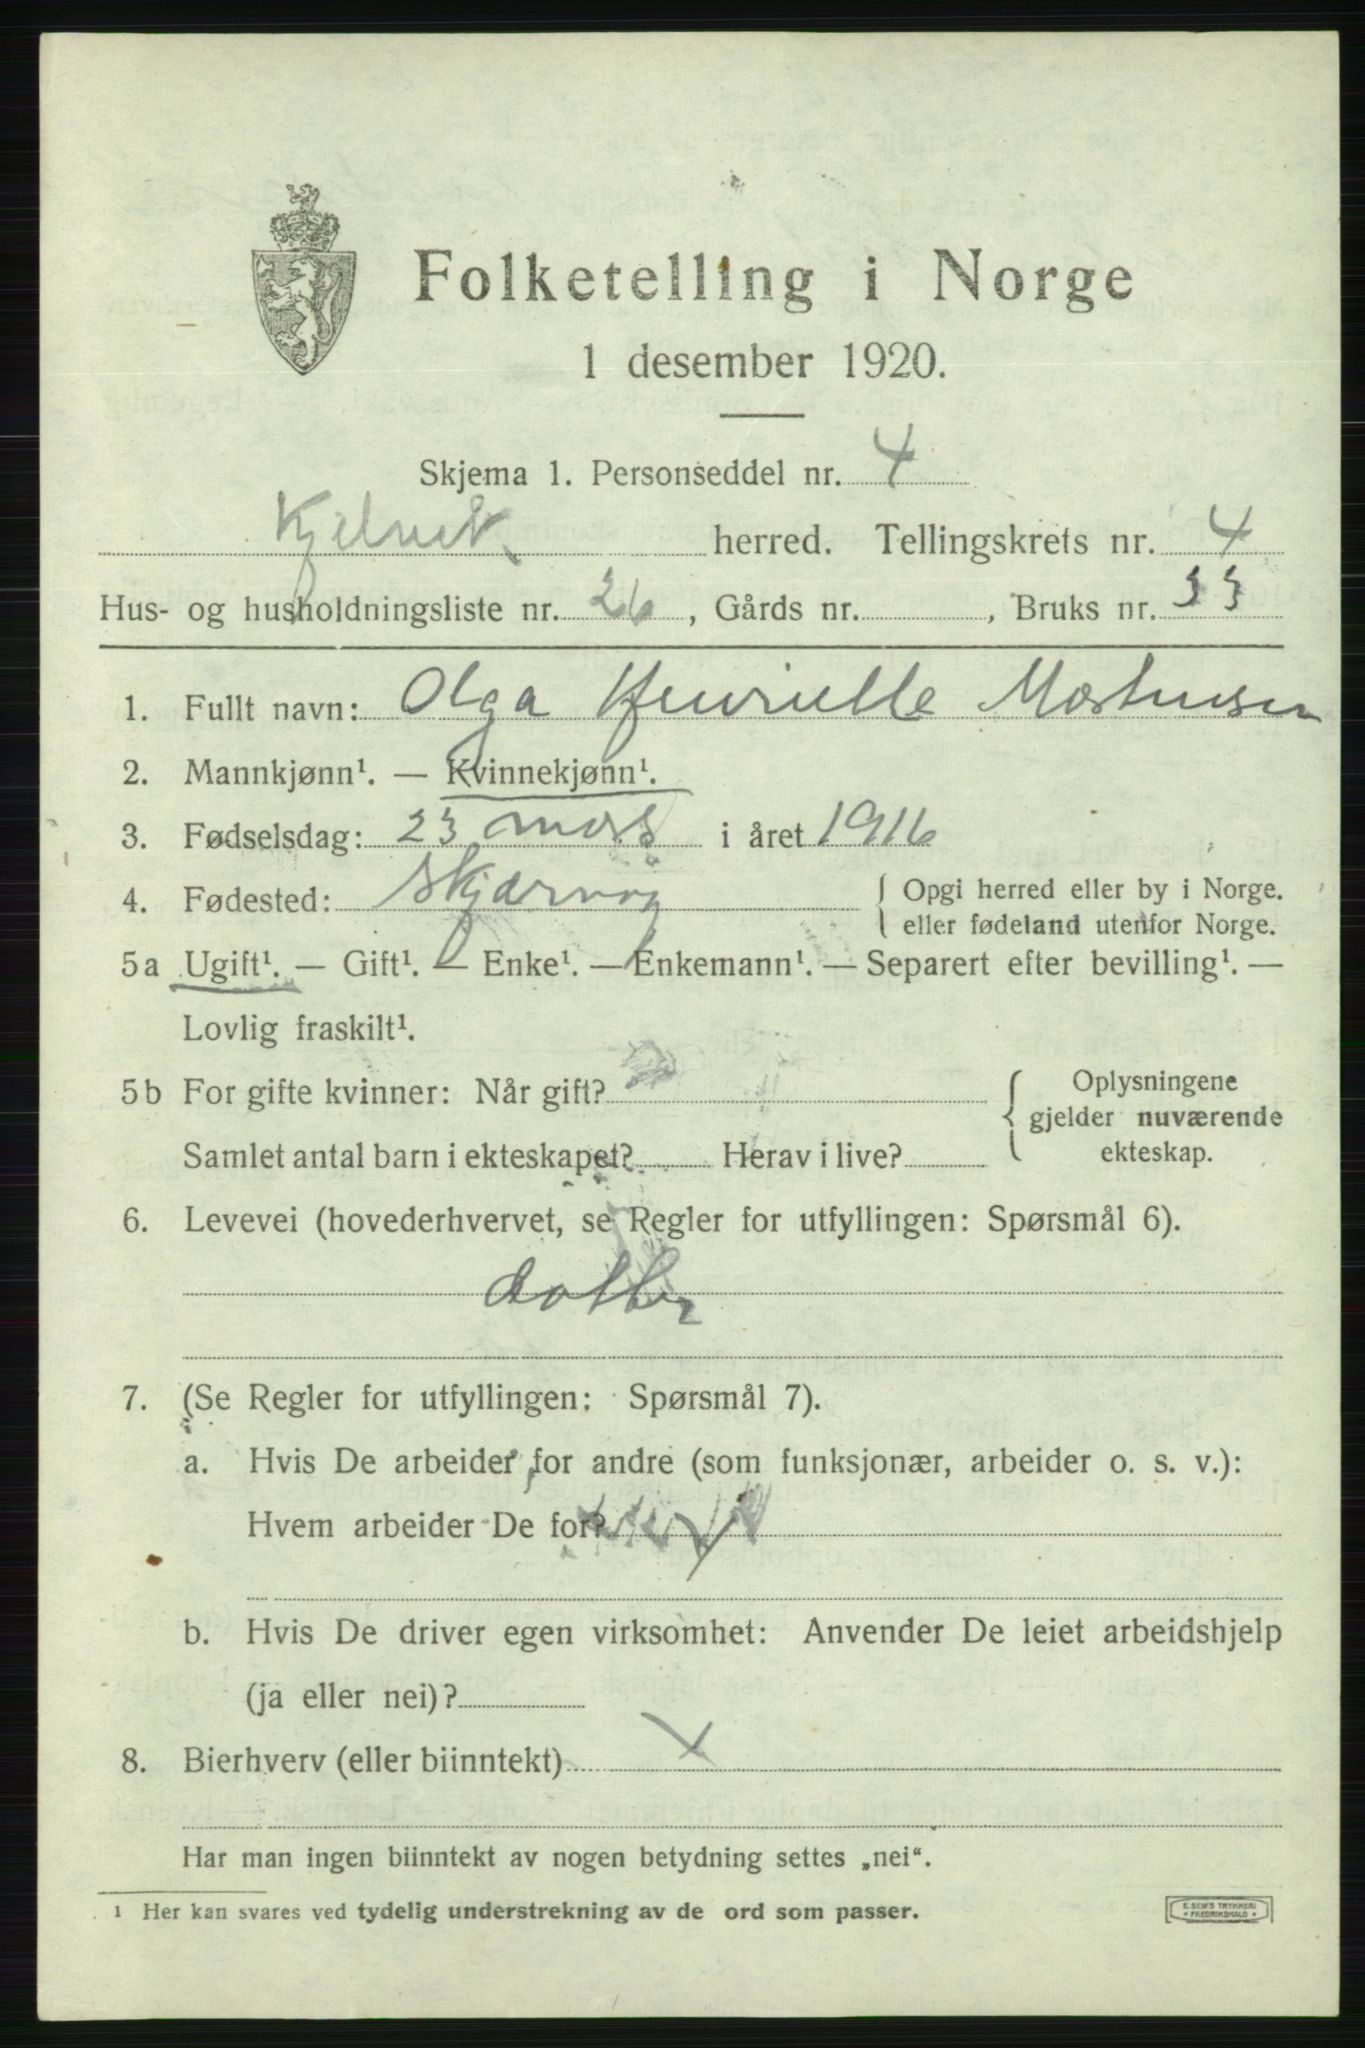 Folketelling i Norge
1 desember 1920.
Skjema 1. Personseddel nr. 4
Kjelvik herred. Tellingskrets nr. 4
Hus- og husholdningsliste nr. 26, Gårds nr. , Bruks nr. 33
1. Fullt navn: Olga Henriette
2. Mannkjønn¹. — Kvinnekjønn¹.
3. Fødselsdag: 23 mars i året 1916
4. Fødested: Skjærvøy { Opgi herred eller by i Norge.
eller fødeland utenfor Norge.
5a Ugift¹. — Gift¹. — Enke¹. — Enkemann¹. — Separert efter bevilling¹. —
Lovlig fraskilt¹.
5b For gifte kvinner: Når gift? { Oplysningene
gjelder nuværende
Samlet antal barn i ekteskapet? Herav i live? ekteskap.
6. Levevei (hovederhvervet, se Regler for utfyllingen: Spørsmål 6).
datter
7. (Se Regler for utfyllingen: Spørsmål 7).
a. Hvis De arbeider for andre (som funksjonær, arbeider o. s. v.):
Hvem arbeider De for?
b. Hvis De driver egen virksomhet: Anvender De leiet arbeidshjelp
(ja eller nei)?
8. Bierhverv (eller biinntekt) x
Har man ingen biinntekt av nogen betydning settes „nei“.
¹ Her kan svares ved tydelig understrekning av de ord som passer.
E. SEM'S TRYKKERI
* FREDRIKSHALD *